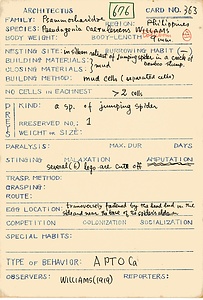 ARCHITECTUS 676 CARD NO. 363
FAMILY: Psammocharidae REGION: Philippines
SPECIES: Pseudagenia caerulescens WILLIAMS
BODY WEIGHT: BODY-LENGTH: 9 mm
NESTING SITE: in silken retreat of jumping spider in a crack of BURROWING HABIT (—)
BUILDING MATERIALS: } mud bamboo clump.
CLOSING MATERIALS:
BUILDING METHOD: mud cells (separated cells)
NO. CELLS IN EACH NEST > 2 cells
PREIS
KIND: a sp. of jumping spider
RESERVED NO.: 1
WEIGHT OR SIZE:
PARALYSIS: MAX. DUR DAYS
STINGING MALAXATION AMPUTATION
several (6) legs are cut off
TRASP. METHOD:
GRASPING:
ROUTE:
EGG LOCATION transversely fastened by the
COMPETITION COLONIZATION SOCIALIZATION
SPECIAL HABITS:
TYPE OF BEHAVIOR: APTO Ca
OBSERVERS: WILLIAMS (1919) REPORTERS: